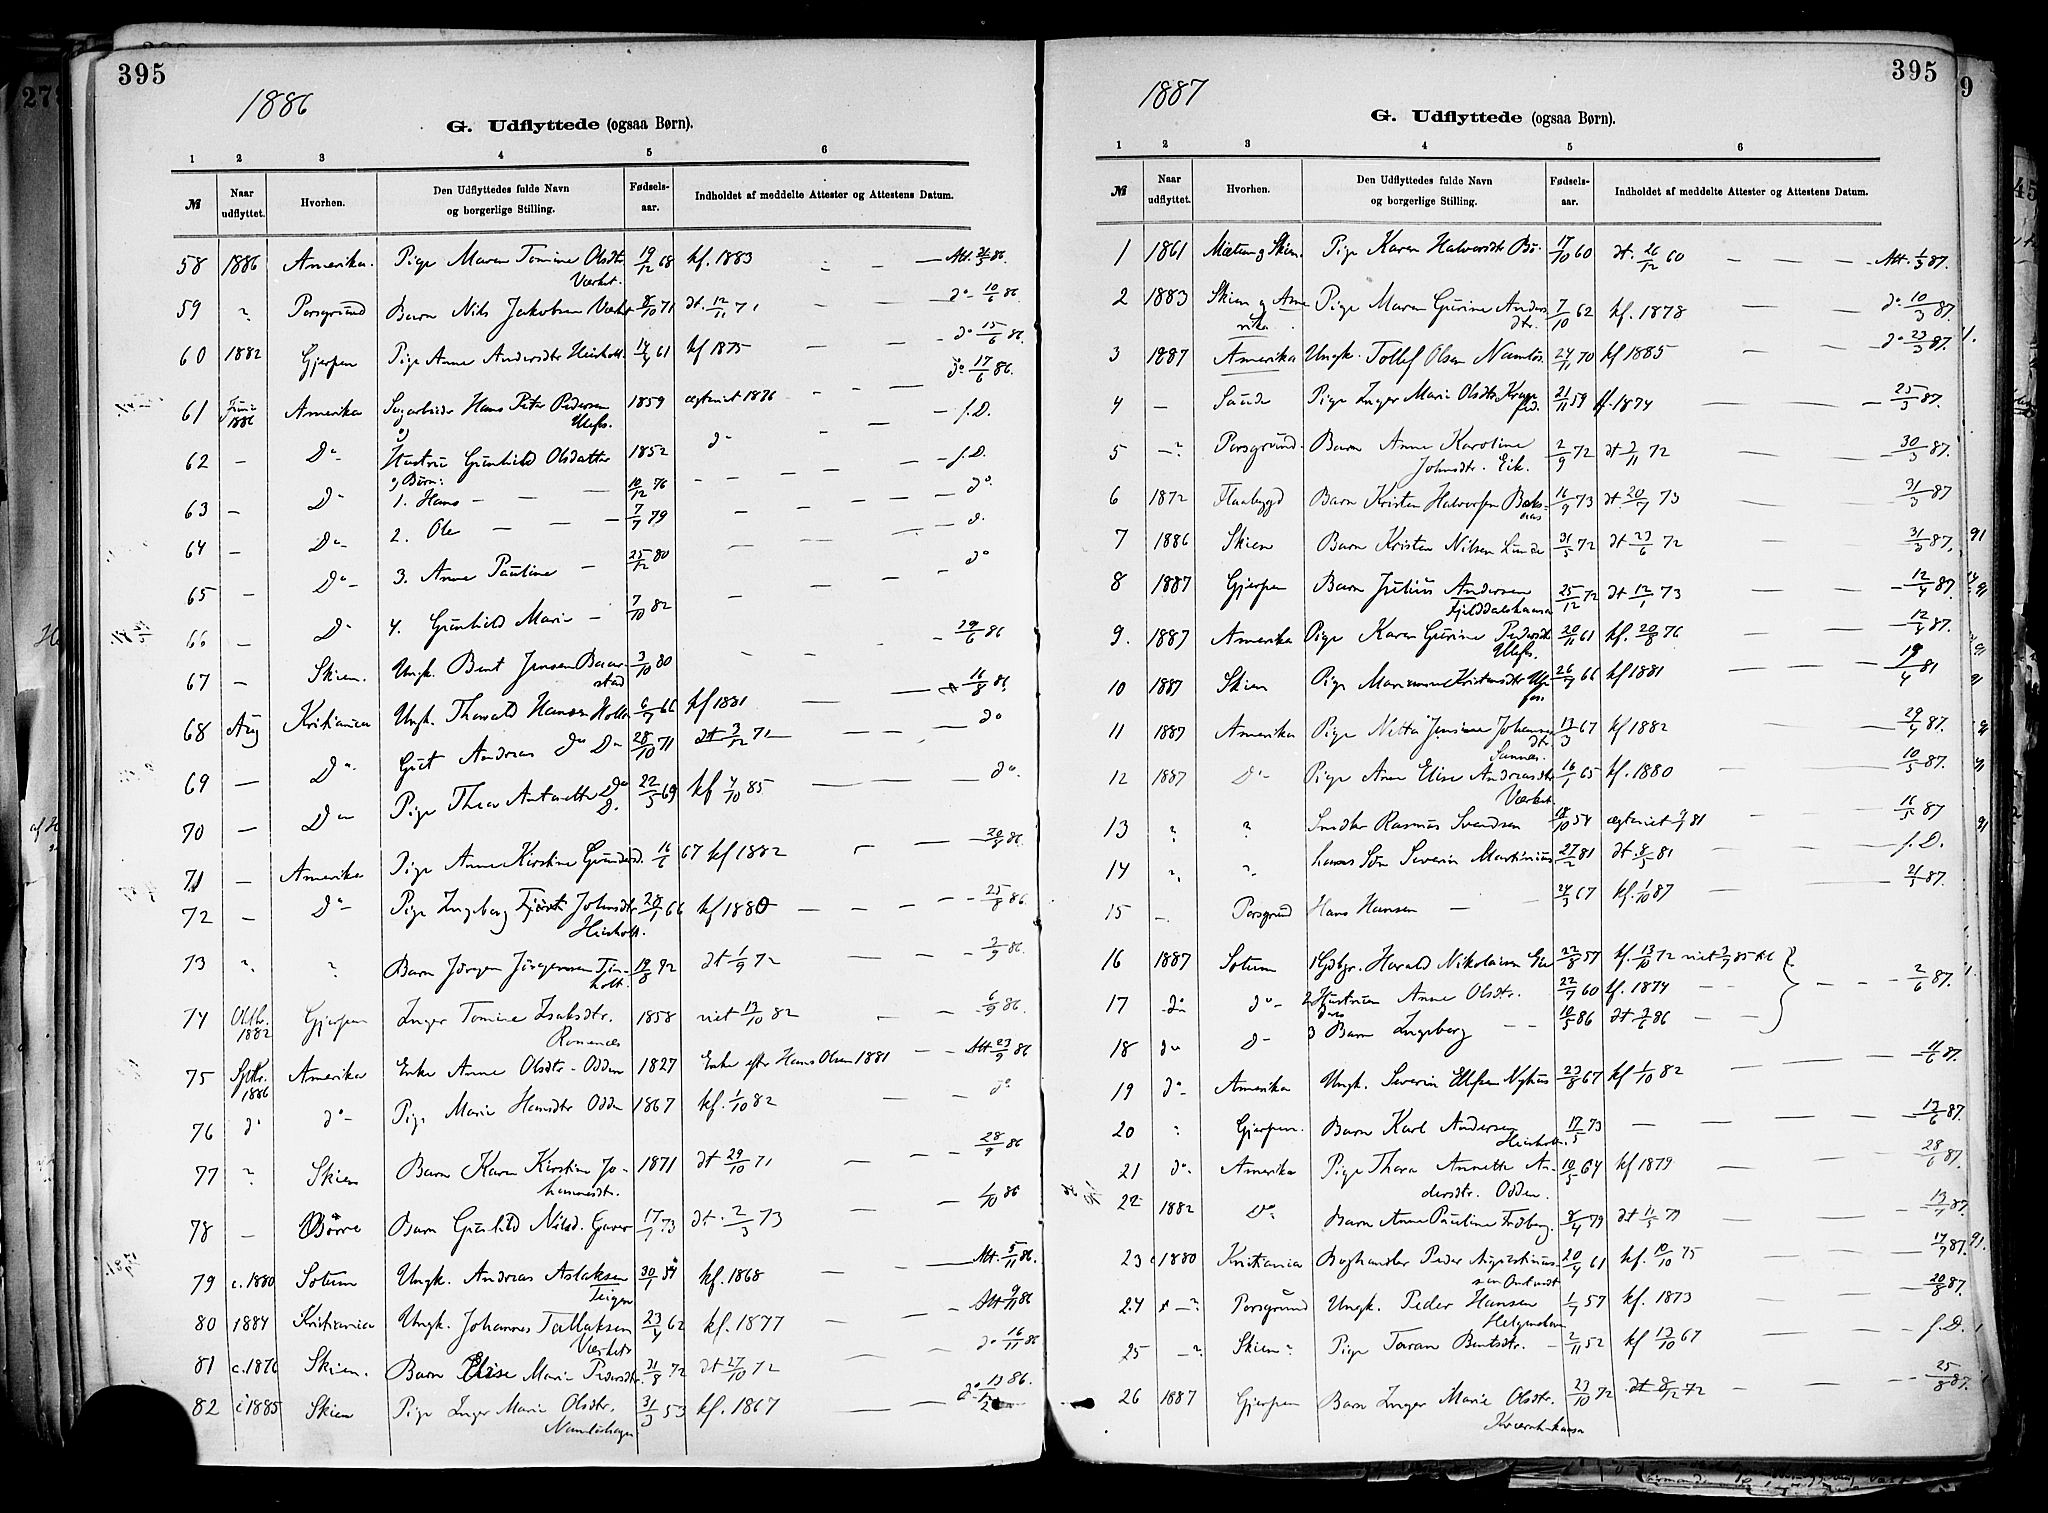 395
1886
G. Udflyttede (ogsaa Børn).
1 2 3 4 5 6
№ Naar udflyttet. Hvorhen. Den Udflyttedes fulde Navn og borgerlige Stilling. Fødsels-aar. Indholdet af meddelte Attester og Attestens Datum.
58 1886 Amerika. Pige Maren Tomine Olsdtr. 19/12 68 kf. 1883 — Att. 86.
Værket.
59 Porsgrund Barn Nils Jakobsen Værket 8/10 71 dt. 12/11 71 — do 10/6 86
60 1882 Gjerpen Pige Anne Andersdtr 14/4 61 kf 1875 — do 15/6 86
do 17/6 86.
61 Juni 1886 Amerika Hans Peter Pedersen 1859 1876 — f. D.
Ulefs.
og
62 — Do Hustru Gunhild Olsdatter 1852 do — f. D.
og Børn:
63 — Do 1. Hans — — 10/12 76 — do
64 — Do 2. Ole — — — 7/7 79 — d.
65 — Do 3. Anne Pauline — 25/12 80 — do
66 — Do 4. Gunhild Marie — 7/10 82 —
67 — Skien. Ungk. Bent Jensen 3/10 80 — 29/6 86
68 Aug Kristiania Ungk. Thorvald Hansen Holla 6/7 66 kf 1881 — 16/8 86.
69 — Do Gut Andreas do Do 28/10 71 dt 3/12 71 — do
70 — Do Pige Thea Antonette Do 22/5 69 kf 4/10 85 — do.
71 — Amerika Pige Anne Kirstine 16/6 67 kf 1882 — 86.
72 — Do Pige Ingeborg Johnsdtr. 66 kf 1880 — 25/8 86.
73 Barn Jørgen Jørgensen 19/8 72 dt 1/9 72 — 3/9 86
74 Oktbr. 1882 Gjerpen Inger Tomine Isaksdtr. 1858 viet 13/10 82 — 6/9 86.
Romnæs
75 Sptbr. 1886 Amerika Enke Anne Olsdtr. Odden 1827 Enke efter Hans Olsen 1881 — Att. 23/9 86
76 do do Pige Marie Hansdtr Odden 1867 kf. 1/10 82 — do
77 Skien Barn Karen Kirstine Jo- 1871 dt 29/10 71 — 28/9 86
hannesdtr.
78 — Børre Barn Gunhild Nilsd. 17/1 73 dt. 2/3 73 — 1/10 86
79 c. 1880 Solum Ungk. Andreas Aslaksen 30/1 54 kf. 1868 — Att. 5/11 86.
Teigen
80 1884 Kristiania Ungk. Johannes Tallaksen 23/4 62 kf. 1877 — Att 9/11 86
Værket
81 c. 1876 Skien. Barn Elise Marie Pedersdtr. 31/8 72 dt 27/10 72 — do 16/11 86
82 i 1885 Skien Pige Inger Marie Olsdtr. 31/3 53 kf. 1867 — do 13/12 86.
Namløshagen
395
1887
G. Udflyttede (ogsaa Børn).
1 2 3 4 5 6
№ Naar udflyttet. Hvorhen. Den Udflyttedes fulde Navn og borgerlige Stilling. Fødsels-aar. Indholdet af meddelte Attester og Attestens Datum.
1 1861 Mælum og Skien. Pige Karen Halvorsdtr Bø. 17/10 60 dt. 26/12 60 — Att. 1/3 87.
2 1883 Skien og Ame- Pige Maren Gurine Anders 7/10 62 kf. 1878 — do 10/3 87.
rika. dtr.
3 1887 Amerika Ungk. Tollef Olsen Namløs. 24/11 70 kf 1885 — do 23/3 87.
4 — Saude Pige Inger Marie Olsdtr. 21/11 59 kf. 1874 — 25/3 87.
5 Porsgrund. Barn Anne Karoline 2/9 72 dt 3/11 72 — 30/3 87.
Johnsdtr. Eik.
6 1872 Flaabygd Barn Kristen Halvorsen 16/9 73 dt. 73 — 31/3 87
7 1886 Skien Barn Kristen Nilsen Lunde 31/5 72 dt 23/6 72 — 31/3 87.
8 1887 Gjerpen Barn Julius Andersen 25/12 72 dt 12/1 73 — 12/4 87.
Fjelddalshausen
9. 1887 Amerika Pige Karen Gurine Pedersdtr 20/11 61 kf. 20/8 76 — 12/4 87.
Ulefs.
10 1887 Skien Pige Marianne Kristensdtr 26/7 66 kf 1881 — 19/4 81
11 1887 Amerika Pige Netta Jensine Johannes 13/3 67 kf 1882 — 29/4 87.
dtr.
Sannes.
12 1887 Do Pige Ane Elise Andreasdtr 16/1 65 kf. 1880 — 10/5 87.
Værket
13 Snedker Rasmus Svendsen 54 81 — 16/5 87
14 hans Søn Severin Martinius 27/2 81 dt. 8/5 81 — f. D.
15 — Porsgrund Hans Hansen — 24/3 67 kf. 1/10 87 — 21/5 87.
16 1887 Solum 1 Gdbgr. Harald Nikolaisen 22/8 57 kf. 13/10 72 viet 85
17 do do 2 Hustruen Anne Olsdtr. 22/7 60 kf. 1874 — 2/6 87.
18 do D 3 Barn Ingeborg — 10/5 86 dt 3/6 86 —
19 do Amerika Ungk. Severin Ellefsen Nyhus 23/8 67 kf 1/10 82 — 11/6 87.
20 Gjerpen. Barn Karl Andersen 17/5 73 — 13/6 87.
21 do Amerika Pige Thara Annette An- 10/5 64 kf 1879 — 28/6 87.
dersdtr. Odden.
22 1882 Do. Barn Anne Pauline 8/4 79 dt 11/5 79 — 13/7 87.
23 c 1880 Kristiania Boghandler Peder Augustinus- 20/4 61 kf. 10/10 75 — 17/7 87.
24 Porsgrund Ungk. Peder Hansen 1/7 57 kf. 1873 — 20/8 87.
25 Skien Pige Taran Bentsdtr. 2/11 52 kf 13/10 67 — f. D.
26 1887 Gjerpen Barn Inger Marie Olsdtr. 23/10 72 dt 8/12 72 — 25/8 87.